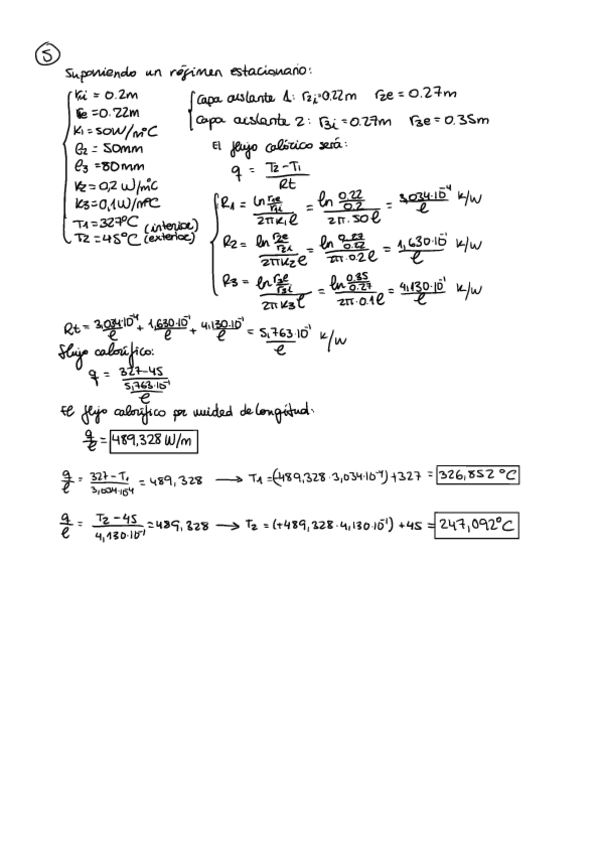 5
Suponiendo un régimen estacionario:
ri = 0.2m
re = 0.22m
K1 = 50W/m°C
e2 = 50mm
e3 = 80mm
K2 = 0,2 W/m°C
K3 = 0,1W/m°C
T1 = 327°C (interior)
T2 = 45°C (exterior)
Capa aislante 1: r2i = 0.22m r2e = 0.27m
Capa aislante 2: r3i = 0.27m r3e = 0.35m
El flujo calórico será:
q = T2 - T1 / Rt
R1 = ln r1e/r1i / 2πK1l = ln 0.22/0.2 / 2π·50l = 3,034·10^-4 / l K/W
R2 = ln r2e/r2i / 2πK2l = ln 0.27/0.22 / 2π·0.2l = 1,630·10^-1 / l K/W
R3 = ln r3e/r3i / 2πK3l = ln 0.35/0.27 / 2π·0.1l = 4,130·10^-1 / l K/W
Rt = 3,034·10^-4 / l + 1,630·10^-1 / l + 4,130·10^-1 / l = 5,763·10^-1 / l K/W
Flujo calorífico:
q = 327-45 / 5,763·10^-1 / l
El flujo calorífico por unidad de longitud:
q/l = 489,328 W/m
q/l = 327 - T1 / 3,034·10^-4 = 489,328 → T1 = (-489,328 · 3,034·10^-4) + 327 = 326,852 °C
q/l = T2 - 45 / 4,130·10^-1 = 489,328 → T2 = (+489,328 · 4,130·10^-1) + 45 = 247,092°C